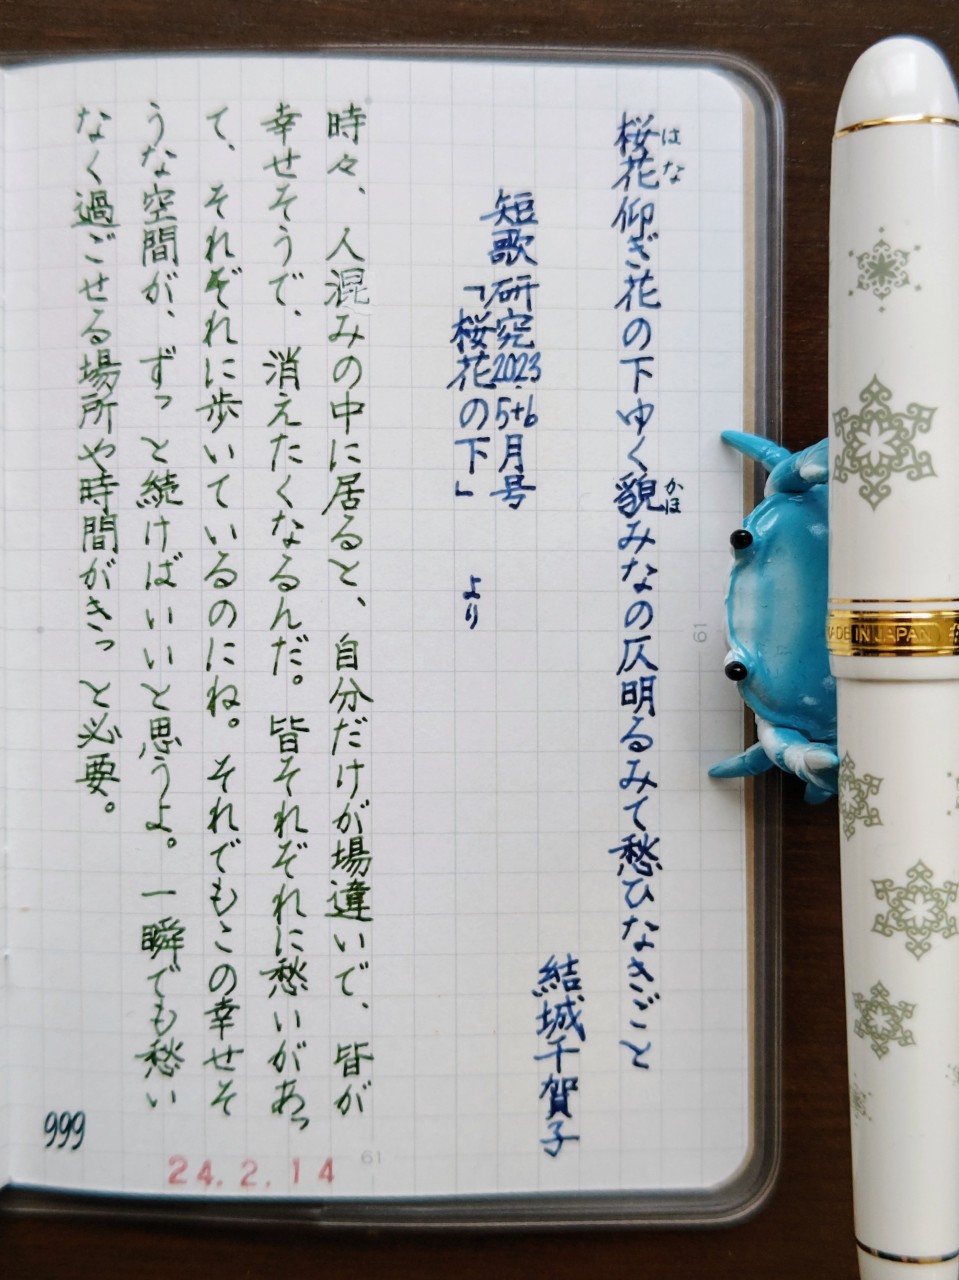 桜花仰ぎ花の下ゆく貌みなの仄明るみて愁ひなきごと
はな
かほ
結城千賀子
短歌研究2023.5+6月号
「桜花の下」より
時々、人混みの中に居ると、自分だけが場違いで、皆が
幸せそうで、消えたくなるんだ。皆それぞれに愁いがあっ
て、それぞれに歩いているのにね。それでもこの幸せそ
うな空間が、ずっと続けばいいと思うよ。一瞬でも愁い
なく過ごせる場所や時間がきっと必要。
999
24.2.14
61
61
MADE IN JAPAN